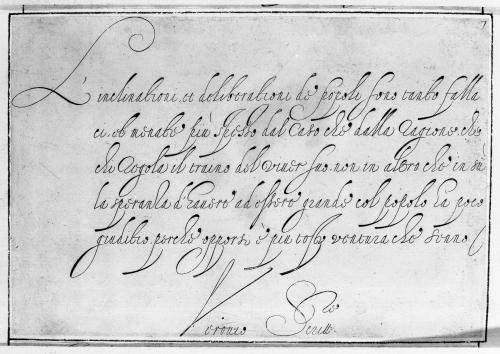 7
L'inclinationi, et deliberationi de popoli sono tanto falla
ci, et menate più spesso dal Caso che dalla ragione, che
chi regola il traino del viver suo non in altro che in su
la speranza d'havere ad essere grande col popolo ha poco
giuditio, perche apporsi è più tosto ventura che senno
Scritt.